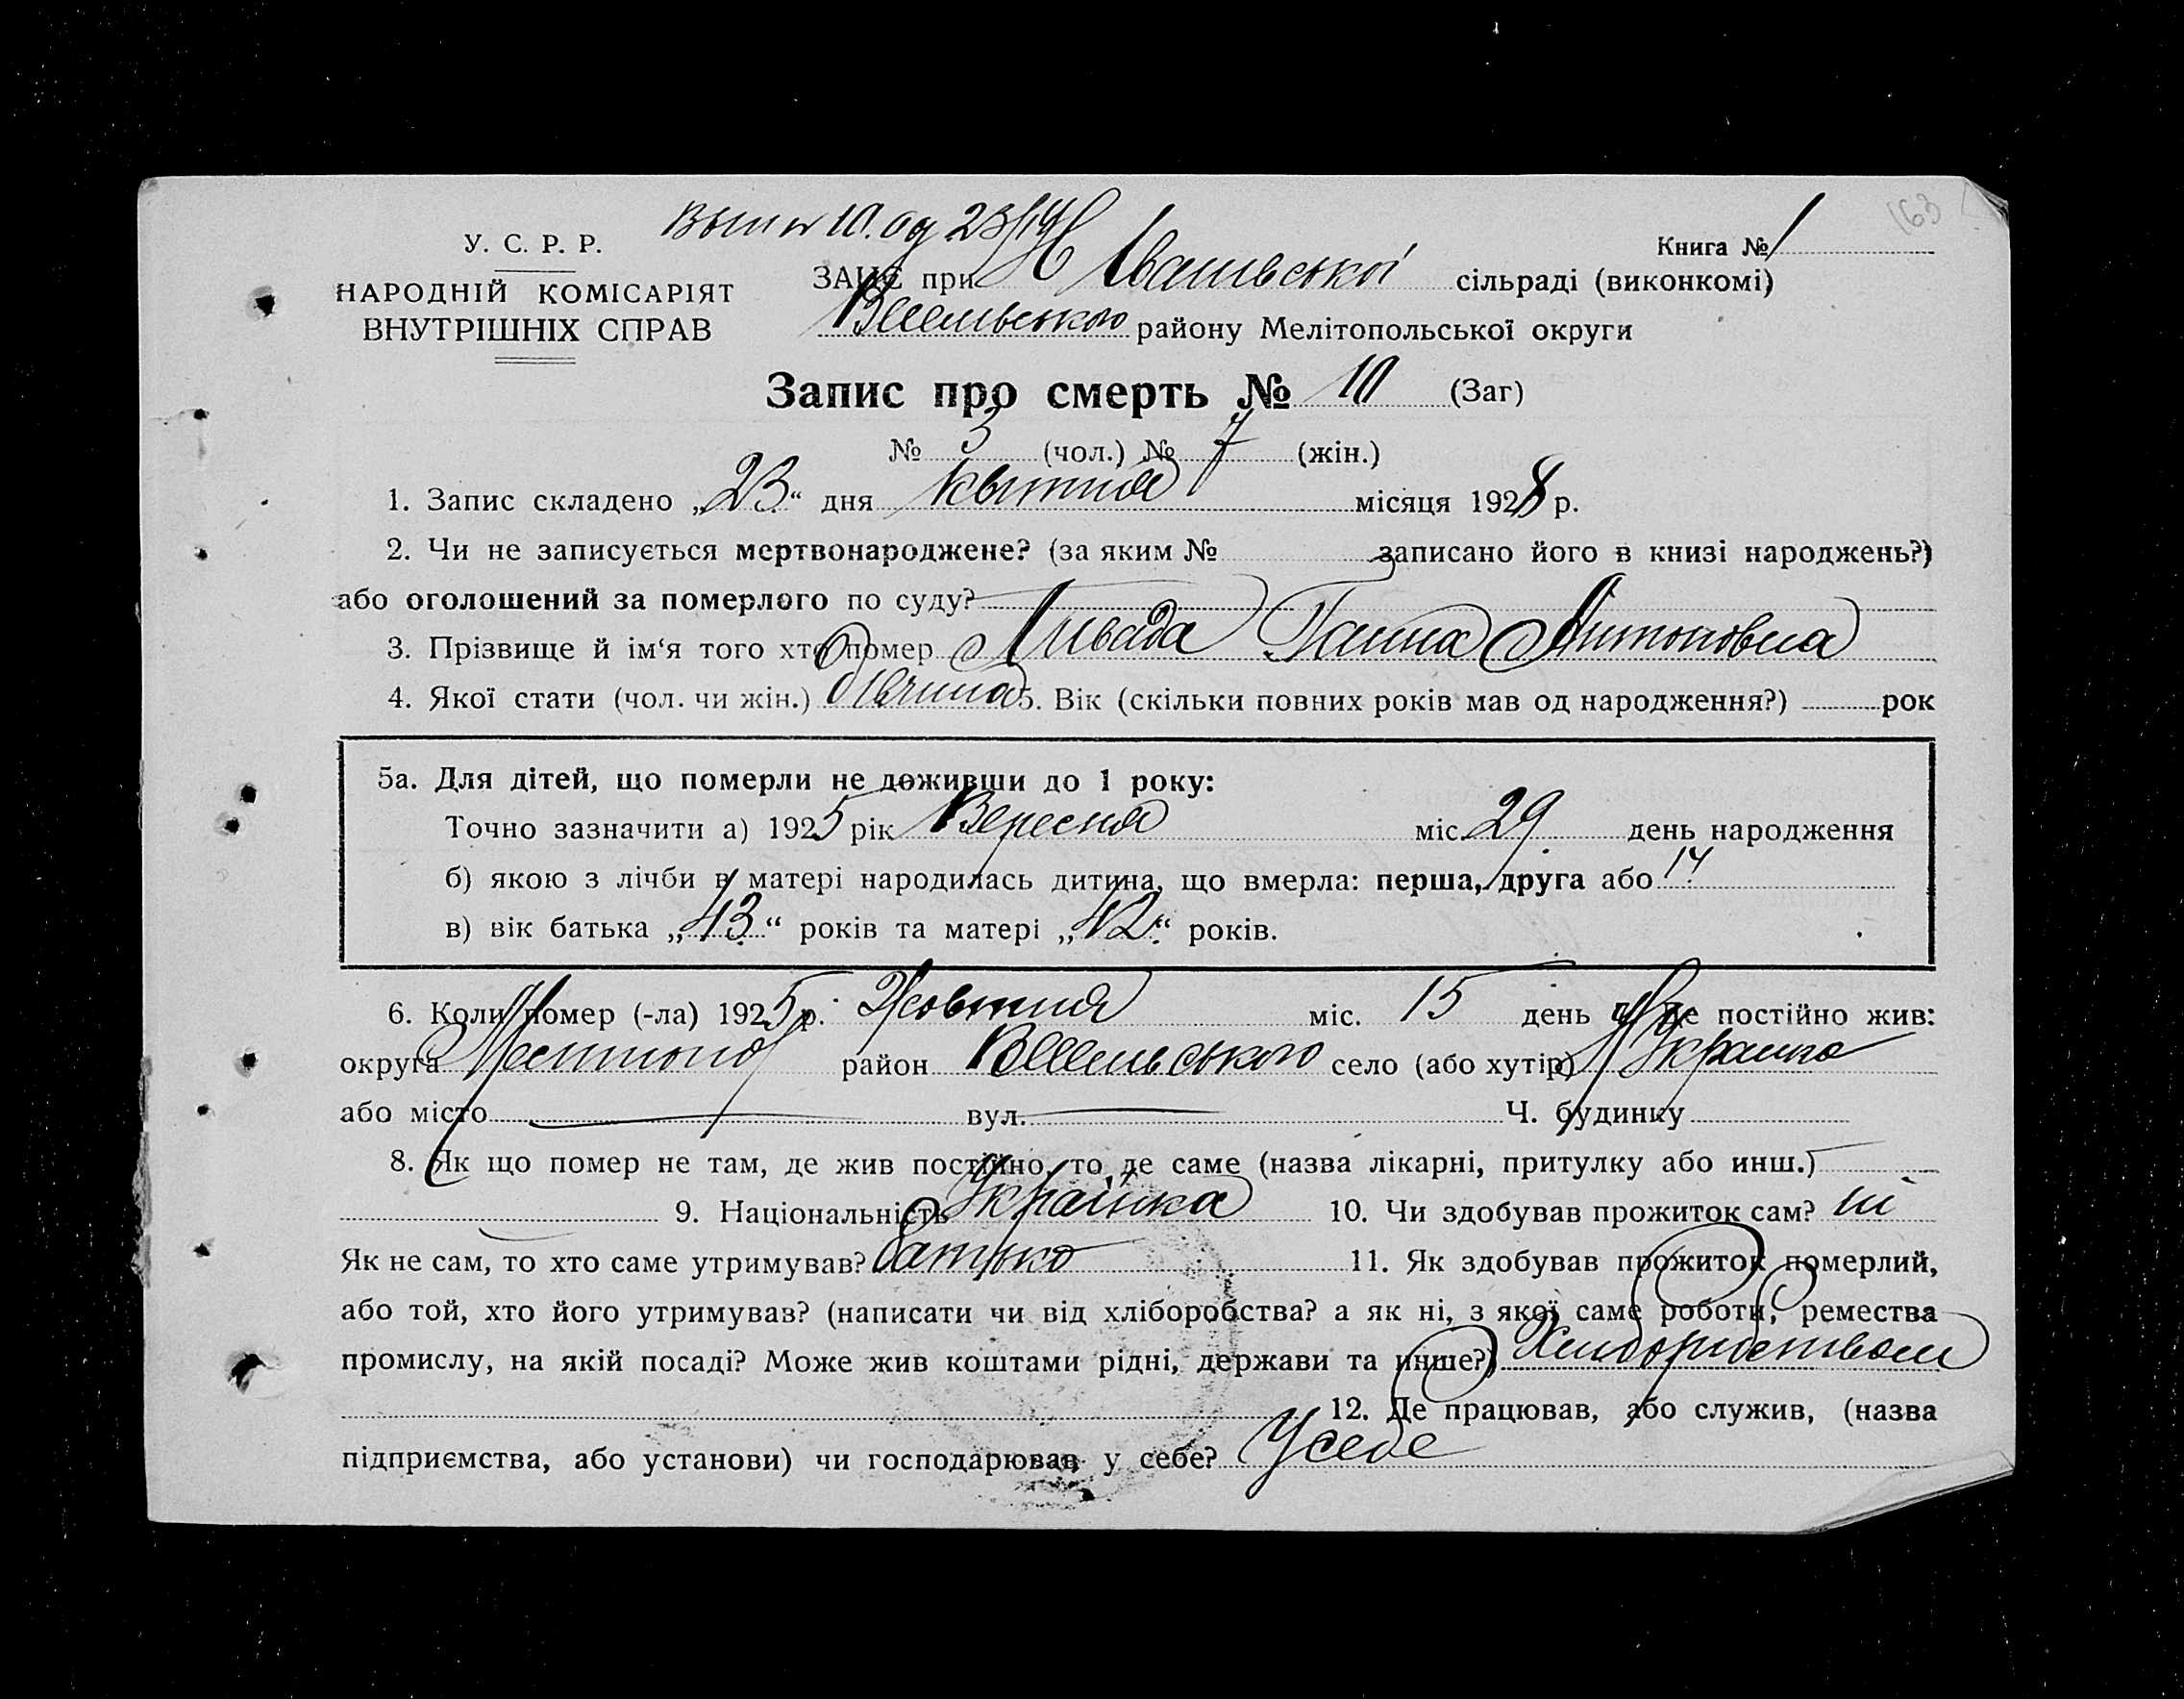 163
У. С. Р. Р.
НАРОДНІЙ КОМІСАРІЯТ
ВНУТРІШНІХ СПРАВ
Книга № 1
ЗАЦС при Н Івашвської сільраді (виконкомі)
району Мелітопольської округи
Запис про смерть № 10 (Заг)
№ 3 (чол.) № 7 (жін.)
1. Запис складено „23“ дня квітня місяця 1928 р.
2. Чи не записується мертвонароджене? (за яким № записано його в книзі народжень?)
або оголошений за померлого по суду?
3. Прізвище й ім‘я того хто помер Ливада Ганна Антоновна
4. Якої стати (чол. чи жін.) дівчина 5. Вік (скільки повних років мав од народження?) рок
5а. Для дітей, що померли не доживши до 1 року:
Точно зазначити а) 1925 рік Вересня міс. 29 день народження
б) якою з лічби в матері народилась дитина, що вмерла: перша, друга або 14
в) вік батька „43“ років та матері „42“ років.
6. Коли помер (-ла) 1925 р. Жовтня міс. 15 день 7. Де постійно жив:
округа район село (або хутір) Україна
або місто вул. Ч. будинку
8. Як що помер не там, де жив постійно, то де саме (назва лікарні, притулку або инш.)
9. Національність Українка 10. Чи здобував прожиток сам? ні
Як не сам, то хто саме утримував? батько 11. Як здобував прожиток померлий,
або той, хто його утримував? (написати чи від хліборобства? а як ні, з якої саме роботи, ремества
промислу, на якій посаді? Може жив коштами рідні, держави та инше?)
12. Де працював, або служив, (назва
підприємства, або установи) чи господарював у себе? У себе